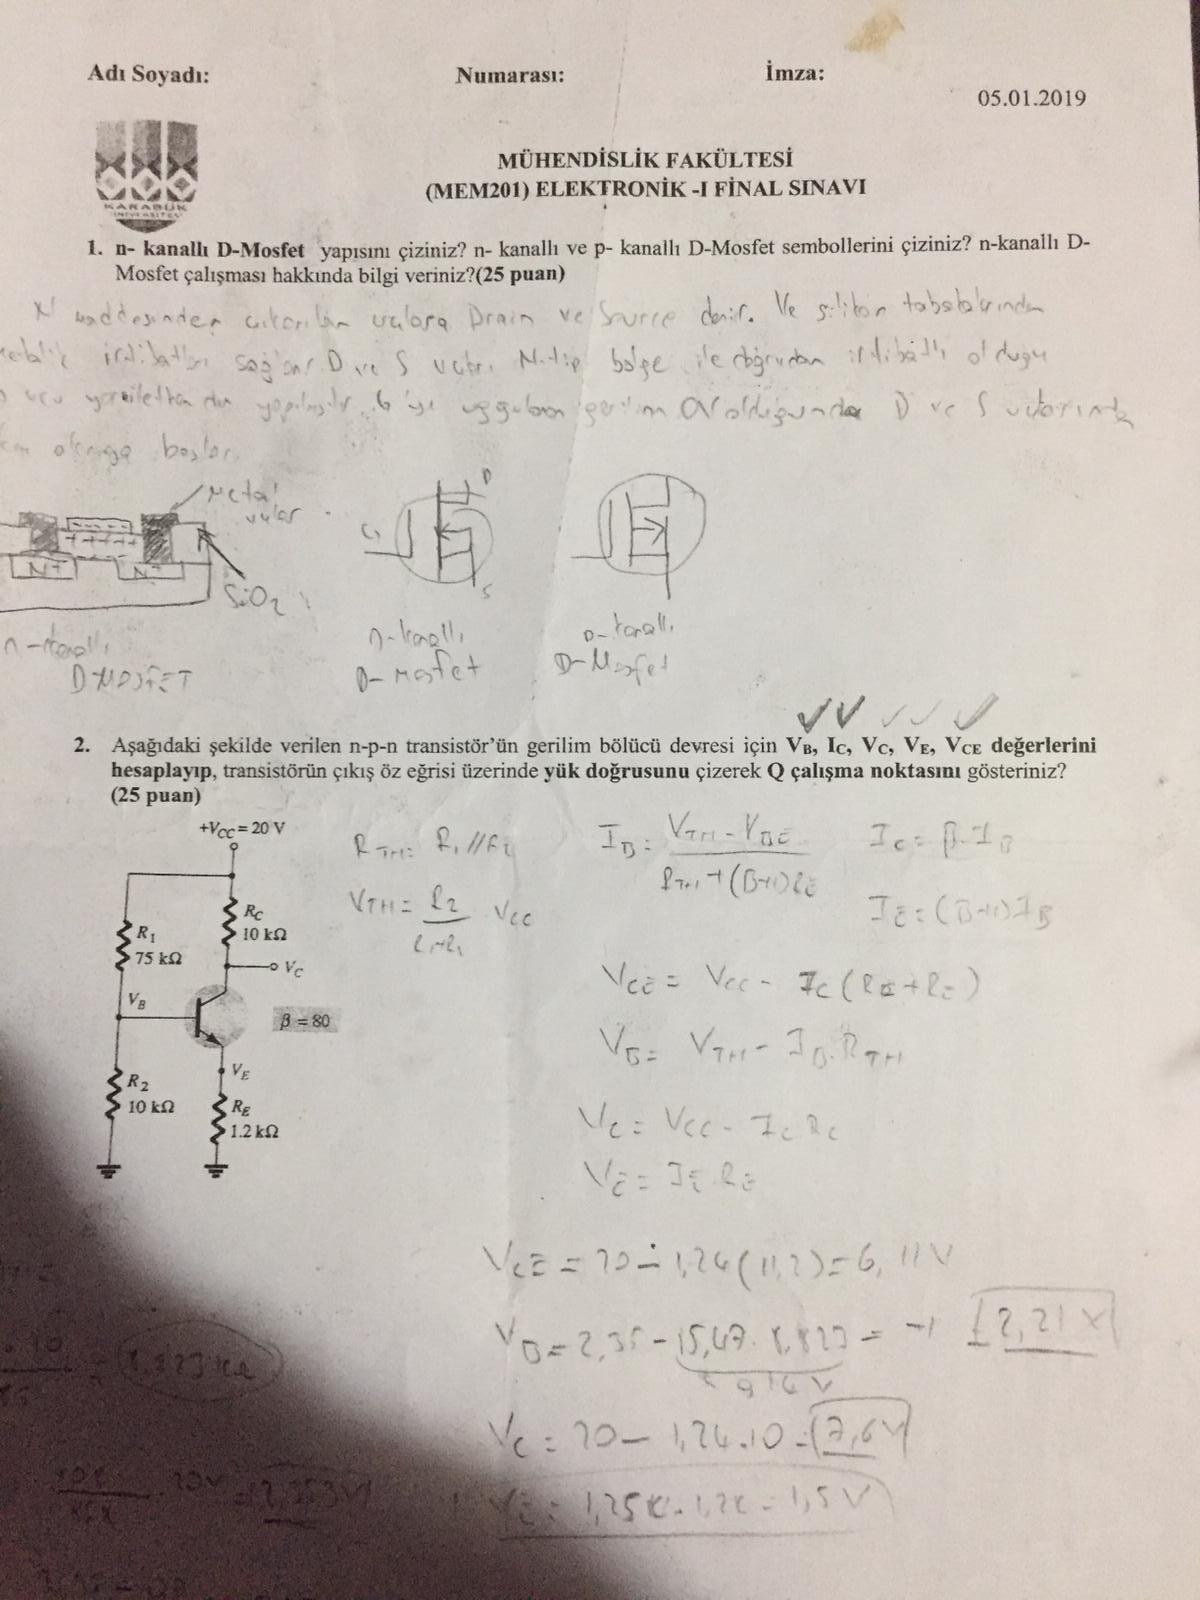 Adı Soyadı: Numarası: İmza:
05.01.2019
KARABÜK
ÜNİVERSİTESİ
MÜHENDİSLİK FAKÜLTESİ
(MEM201) ELEKTRONİK -I FİNAL SINAVI
1. n- kanallı D-Mosfet yapısını çiziniz? n- kanallı ve p- kanallı D-Mosfet sembollerini çiziniz? n-kanallı D-
Mosfet çalışması hakkında bilgi veriniz?(25 puan)
N maddesinden çıkarılan uçlara Drain ve Source denir. Ve silikon tabakalarından
irtibatları sağlanır D ve S uçları N-tip bölge ile doğrudan irtibatlı olduğu
ucu yarıiletkenden yapılmıştır. G'ye uygulanan gerilim 0V olduğunda D ve S uçlarında
akmaya başlar.
Metal
uçlar
SiO2
N+ N+
n-kanallı
D-MOSFET
D
G
S
n-kanallı
D-mosfet
p-kanallı
D-Mosfet
2. Aşağıdaki şekilde verilen n-p-n transistör’ün gerilim bölücü devresi için VB, IC, VC, VE, VCE değerlerini
hesaplayıp, transistörün çıkış öz eğrisi üzerinde yük doğrusunu çizerek Q çalışma noktasını gösteriniz?
(25 puan)
+VCC = 20 V
RC
10 kΩ
R1
75 kΩ
VC
VB
β = 80
VE
R2
10 kΩ
RE
1.2 kΩ
RTH = R1 // R2
VTH = R2 / R2+R1 VCC
IB = VTH - VBE / RTH + (B+1)RE
IC = β.IB
IE = (B+1)IB
VCE = VCC - IC (RC + RE)
VB = VTH - IB.RTH
VC = VCC - IC RC
VE = IE.RE
VCE = 20 - 1,24 (11,2) = 6,11V
VB = 2,35 - 15,47. 8,823 = 2,21 V
VC = 20 - 1,24.10 = 7,6V
VE = 1,25K . 1,2K = 1,5V
8,823 KΩ